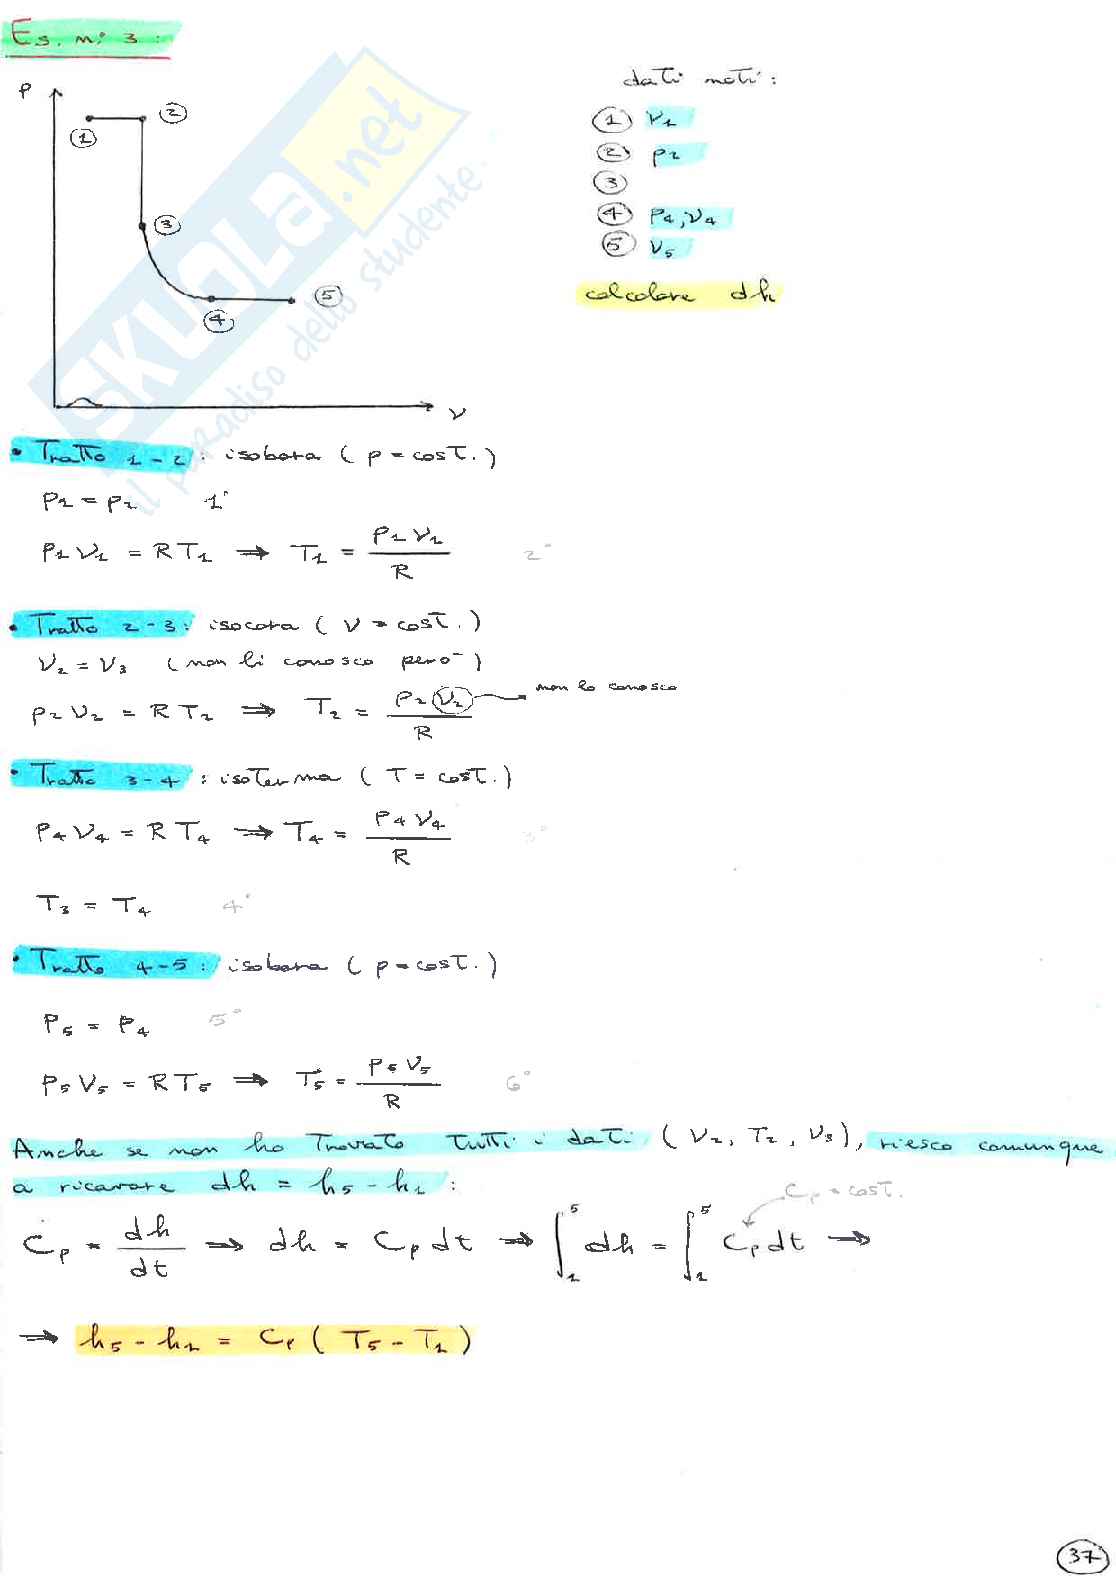 Es. n° 3 :
P
1
2
3
4
5
v
dati noti :
1 v₁
2 p₂
3
4 p₄, v₄
5 v₅
calcolare dh
SKUOLA.net
il paradiso dello studente
• Tratto 1-2 : isobara ( p = cost. )
p₁ = p₂ 1°
p₁ v₁ = R T₁ ⇒ T₁ = p₁ v₁ / R 2°
• Tratto 2-3 : isocora ( v = cost. )
v₂ = v₃ ( non li conosco però )
p₂ v₂ = R T₂ ⇒ T₂ = p₂ v₂ / R → non lo conosco
• Tratto 3-4 : isoterma ( T = cost. )
p₄ v₄ = R T₄ ⇒ T₄ = p₄ v₄ / R 3°
T₃ = T₄ 4°
• Tratto 4-5 : isobara ( p = cost. )
p₅ = p₄ 5°
p₅ v₅ = R T₅ ⇒ T₅ = p₅ v₅ / R 6°
Anche se non ho trovato tutti i dati ( v₂, T₂, v₃ ), riesco comunque
a ricavare dh = h₅ - h₁ :
Cp = cost.
Cp = dh / dt ⇒ dh = Cp dt ⇒ ∫₁⁵ dh = ∫₁⁵ Cp dt ⇒
⇒ h₅ - h₁ = Cp ( T₅ - T₁ )
37